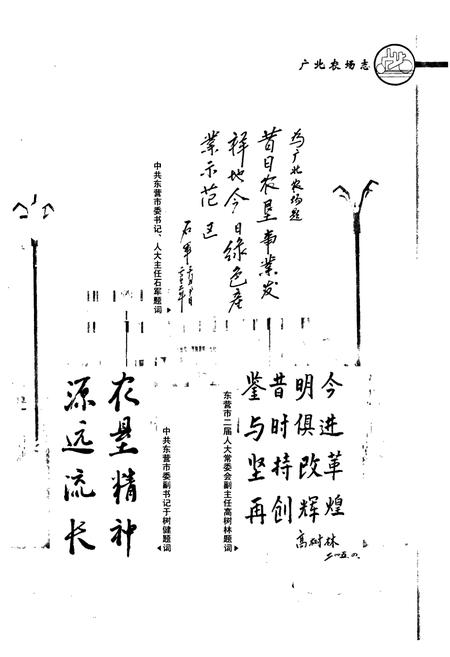 广北农场志
为广北农场题
昔日农垦事业发
祥地今日绿色产
业示范区
石军
中共东营市委书记、人大主任石军题词
农垦精神
源远流长
中共东营市委副书记于树健题词
鉴昔明今
与时俱进
坚持改革
再创辉煌
高树林
东营市二届人大常委会副主任高树林题词